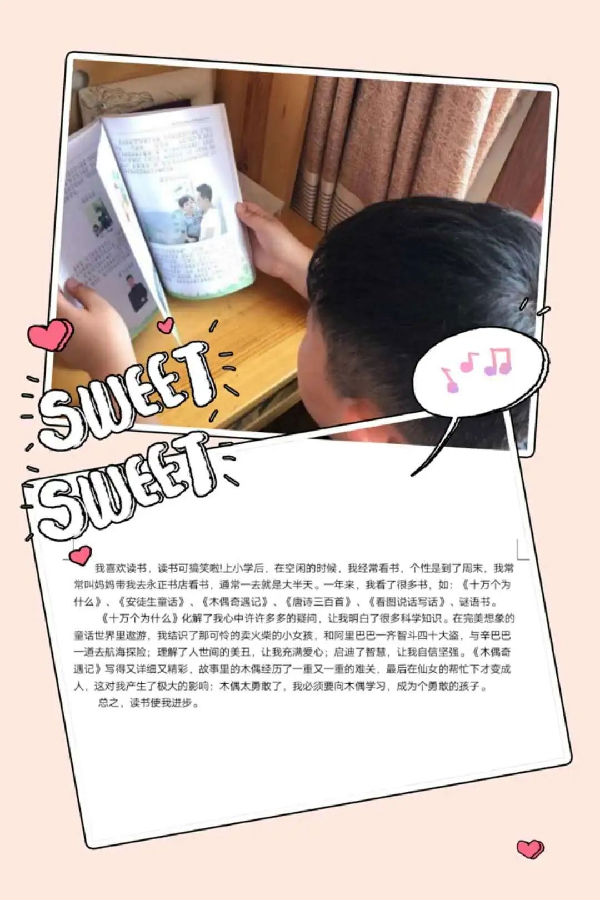 SWEET
SWEET
我喜欢读书，读书可搞笑啦!上小学后，在空闲的时候，我经常看书，个性是到了周末，我常
常叫妈妈带我去永正书店看书，通常一去就是大半天。一年来，我看了很多书，如：《十万个为
什么》、《安徒生童话》、《木偶奇遇记》、《唐诗三百首》、《看图说话写话》、谜语书。
《十万个为什么》化解了我心中许许多多的疑问，让我明白了很多科学知识。在完美想象的
童话世界里遨游，我结识了那可怜的卖火柴的小女孩，和阿里巴巴一齐智斗四十大盗，与辛巴巴
一道去航海探险；理解了人世间的美丑，让我充满爱心；启迪了智慧，让我自信坚强。《木偶奇
遇记》写得又详细又精彩，故事里的木偶经历了一重又一重的难关，最后在仙女的帮忙下才变成
人，这对我产生了极大的影响：木偶太勇敢了，我必须要向木偶学习，成为个勇敢的孩子。
总之，读书使我进步。